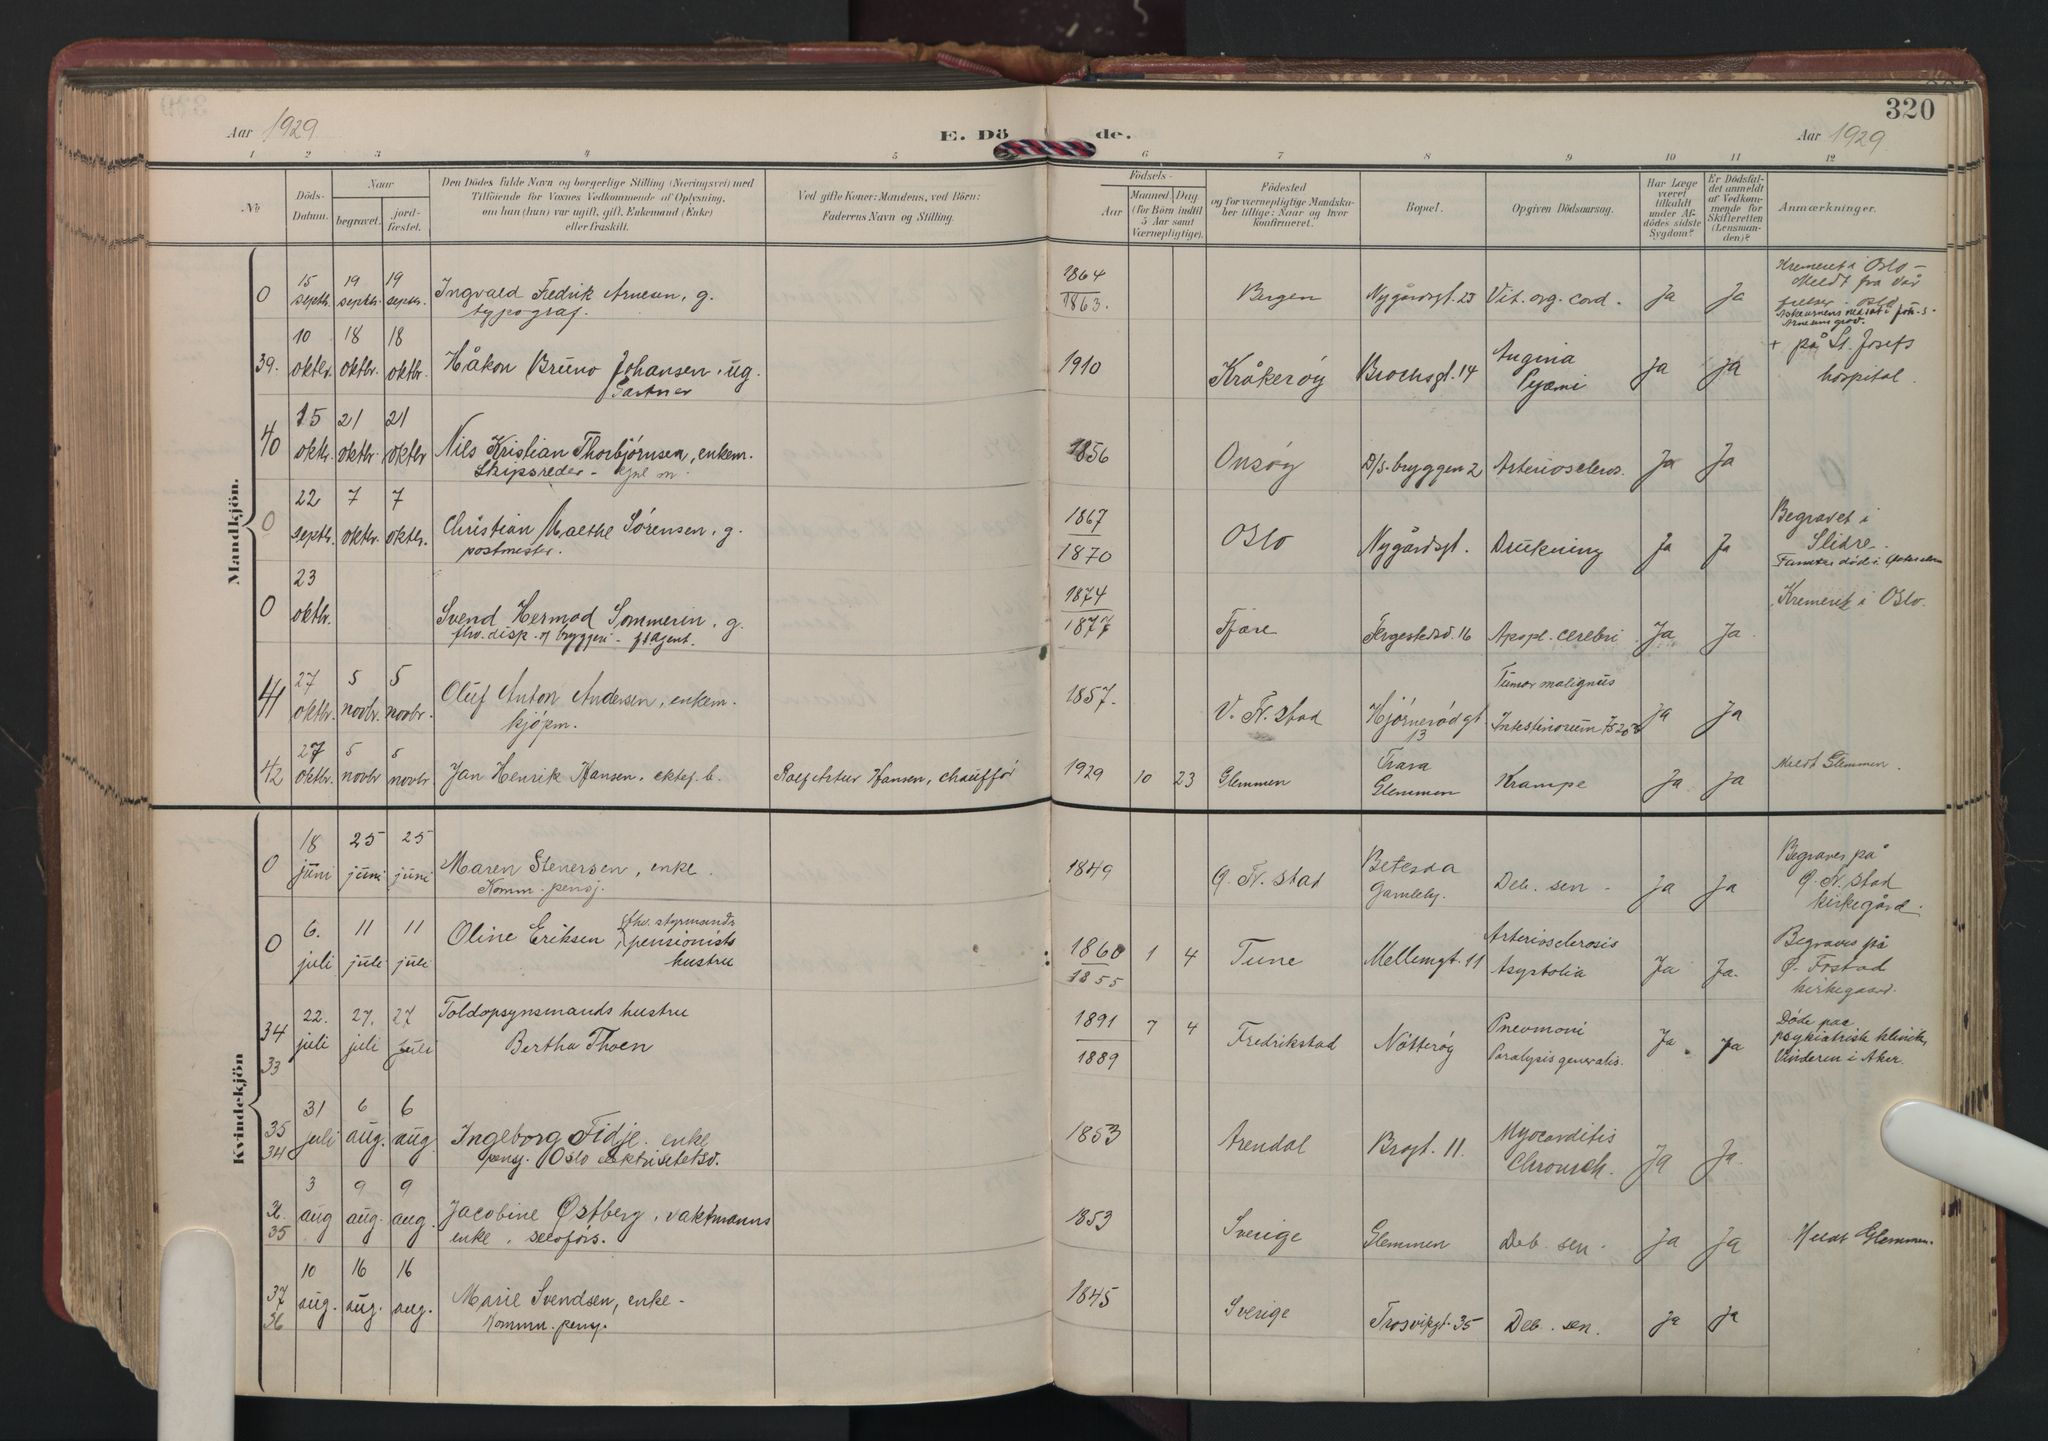 320
Aar 1929
E. Dö de.
Aar 1929
1 2 3 4 5 6 7 8 9 10 11 12
No
Döds-
Datum.
Naar
begravet.
jord-
fæstet.
Den Dödes fulde Navn og borgerlige Stilling (Næringsvei) med
Tilföiende for Voxnes Vedkommende af Oplysning,
om han (hun) var ugift, gift, Enkemand (Enke)
eller fraskilt.
Ved gifte Koner: Mandens, ved Börn:
Faderens Navn og Stilling.
Födsels-
Aar
Maaned Dag
(for Börn indtil
5 Aar samt
Værnepligtige).
Födested
og for værnepligtige Mandskaber tillige: Naar og hvor
konfirmeret.
Bopæl.
Opgiven Dödsaarsag.
Har Læge
været
tilkaldt
under Afdödes sidste
Sygdom?
Er Dödsfaldet anmeldt
af Vedkommende for
Skifteretten
(Lensmanden)?
Anmærkninger.
Mandkjön.
0 15 septbr. 19 septbr. 19 septbr. Ingvald Fredrik Arnesen, g.
typograf.
1864
1863.
Bergen Nygårdsgt. 23 Vit. org. cord. Ja Ja
Kremeret i Oslo -
Meldt fra Vår
frelser i Oslo
Askeurnen nedsat i Joh.s.
Arnesens grav.
39. 10 oktbr. 18 oktbr. 18 oktbr. Håkon Bruno Johansen, ug.
Gartner
1910 Kråkerøy Brochsgt. 14 Angina
Pyæmi
Ja Ja
+ på St. Josefs
hospital.
40 15 oktbr. 21 oktbr. 21 oktbr. Nils Kristian Thorbjørnsen, enkem.
Skipsreder -
1856 Onsøy D/s. bryggen 2 Arterioscleros. Ja Ja
0 22 septbr. 7 oktbr. 7 oktbr. Christian Malthe Sørensen, g.
postmester.
1867
1870
Oslo Nygårdsgt. Drukning Ja Ja
Begravet i
Slidre.
0 23 oktbr. Svend Hermod Sommerin, g.
fhv. disp. v/ bryggeri - agent.
1874
1877
Fjære Fergestedsv. 16 Apopl. cerebri Ja Ja
Kremert i Oslo.
41 27 oktbr. 5 novbr. 5 novbr. Oluf Anton Andersen, enkem.
kjøpm.
1857. V. Fr. stad Hjørnerødgt.
13
Tumor malignus
Intestinorum
Ja Ja
42 27 oktbr. 5 novbr 5 novbr Jan Henrik Hansen, ektef. b. Rolf Artur Hansen, chauffør 1929 10 23 Glemmen Trara
Glemmen
Krampe Ja Ja Meldt Glemmen.
Kvindekjön
0 18 juni 25 juni 25 juni Maren Stenersen, enke.
Komm. pensj.
1849 G. Fr. stad Betesda
Gamleby.
Deb. sen - Ja Ja
Begraves på
G. Fr. stad
kirkegård.
0 6. juli 11 juli 11 juli Oline Eriksen fhv. styrmands
pensionists
hustru
1860
1855
1 4 Tune Mellemgt. 11 Arteriosclerosis
Asystolia
Ja Ja.
Begraves på
Ø. Frstad
kirkegaard.
34
33
22. juli 27. juli 27 juli Toldopsynsmands hustru
Bertha Thoen
1891
1889
7 4 Fredrikstad Nøtterøy Pnevmoni
Paralysis generalis.
Ja Ja
Døde paa
psykiatrisk klinick,
Vinderen i Aker.
35
34
31 juli 6 aug. 6 aug Ingeborg Fidje. enke
pensj. Oslo elektrisitetsv.
1853 Arendal Brogt. 11. Myocarditis
Chronich.
Ja Ja.
35
3 aug 9 aug. 9 aug. Jacobine Østberg, vaktmanns
enke, selvfors.
1853 Sverige Glemmen Deb. sen. Ja Ja Meldt Glemmen.
37
36
10 aug. 16 aug. 16 aug. Marie Svendsen, enke -
Komm. pensj.
1845 Sverige Trosvikgt. 35 Deb. sen. Ja Ja